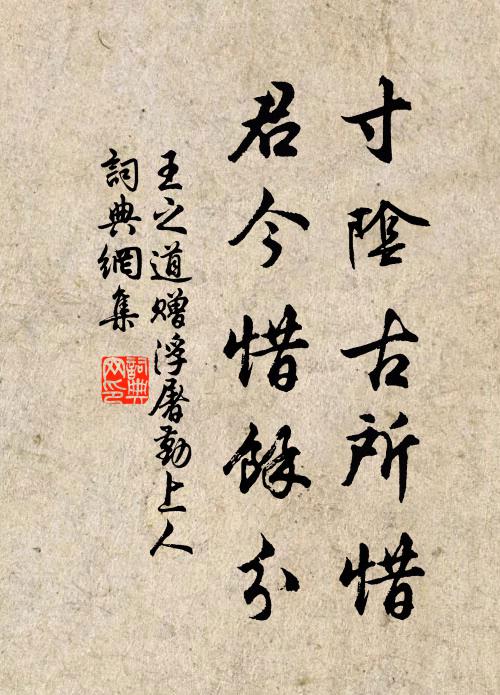 寸陰古所惜
君今惜餘分
王之道贈浮屠勤上人
詞典網集
詞典網印